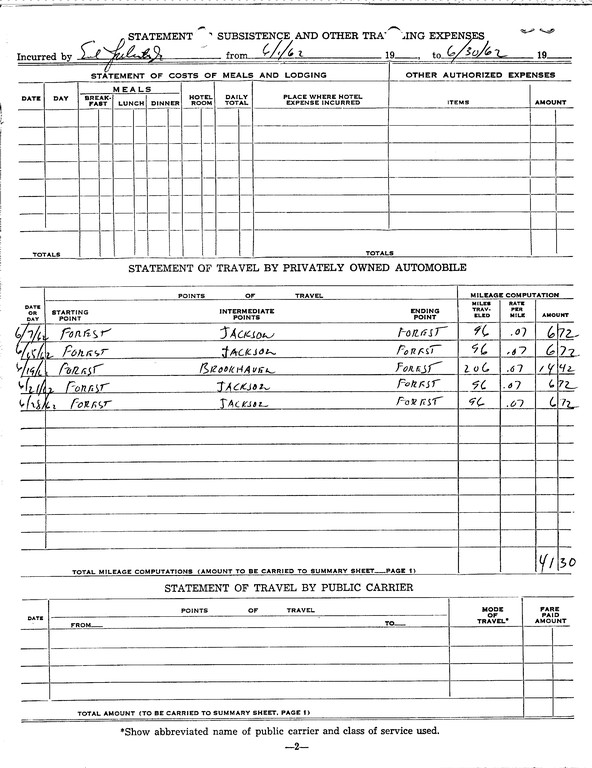 STATEMENT SUBSISTENCE AND OTHER TRA ING EXPENSES
Incurred by from 6/1/62 19 , to 6/30/62 19
STATEMENT OF COSTS OF MEALS AND LODGING OTHER AUTHORIZED EXPENSES
DATE DAY MEALS BREAK-FAST LUNCH DINNER HOTEL ROOM DAILY TOTAL PLACE WHERE HOTEL EXPENSE INCURRED ITEMS AMOUNT
TOTALS TOTALS
STATEMENT OF TRAVEL BY PRIVATELY OWNED AUTOMOBILE
POINTS OF TRAVEL MILEAGE COMPUTATION
DATE OR DAY STARTING POINT INTERMEDIATE POINTS ENDING POINT MILES TRAV-ELED RATE PER MILE AMOUNT
6/7/62 FOREST JACKSON FOREST 96 .07 6 72
6/15/62 FOREST JACKSON FOREST 96 .07 6 72
6/19/62 FOREST BROOKHAVEN FOREST 206 .07 14 42
6/21/62 FOREST JACKSON FOREST 96 .07 6 72
6/28/62 FOREST JACKSON FOREST 96 .07 6 72
TOTAL MILEAGE COMPUTATIONS (AMOUNT TO BE CARRIED TO SUMMARY SHEET—PAGE 1) 41 30
STATEMENT OF TRAVEL BY PUBLIC CARRIER
DATE POINTS OF TRAVEL MODE OF TRAVEL* FARE PAID AMOUNT
FROM— TO—
TOTAL AMOUNT (TO BE CARRIED TO SUMMARY SHEET, PAGE 1)
*Show abbreviated name of public carrier and class of service used.
—2—